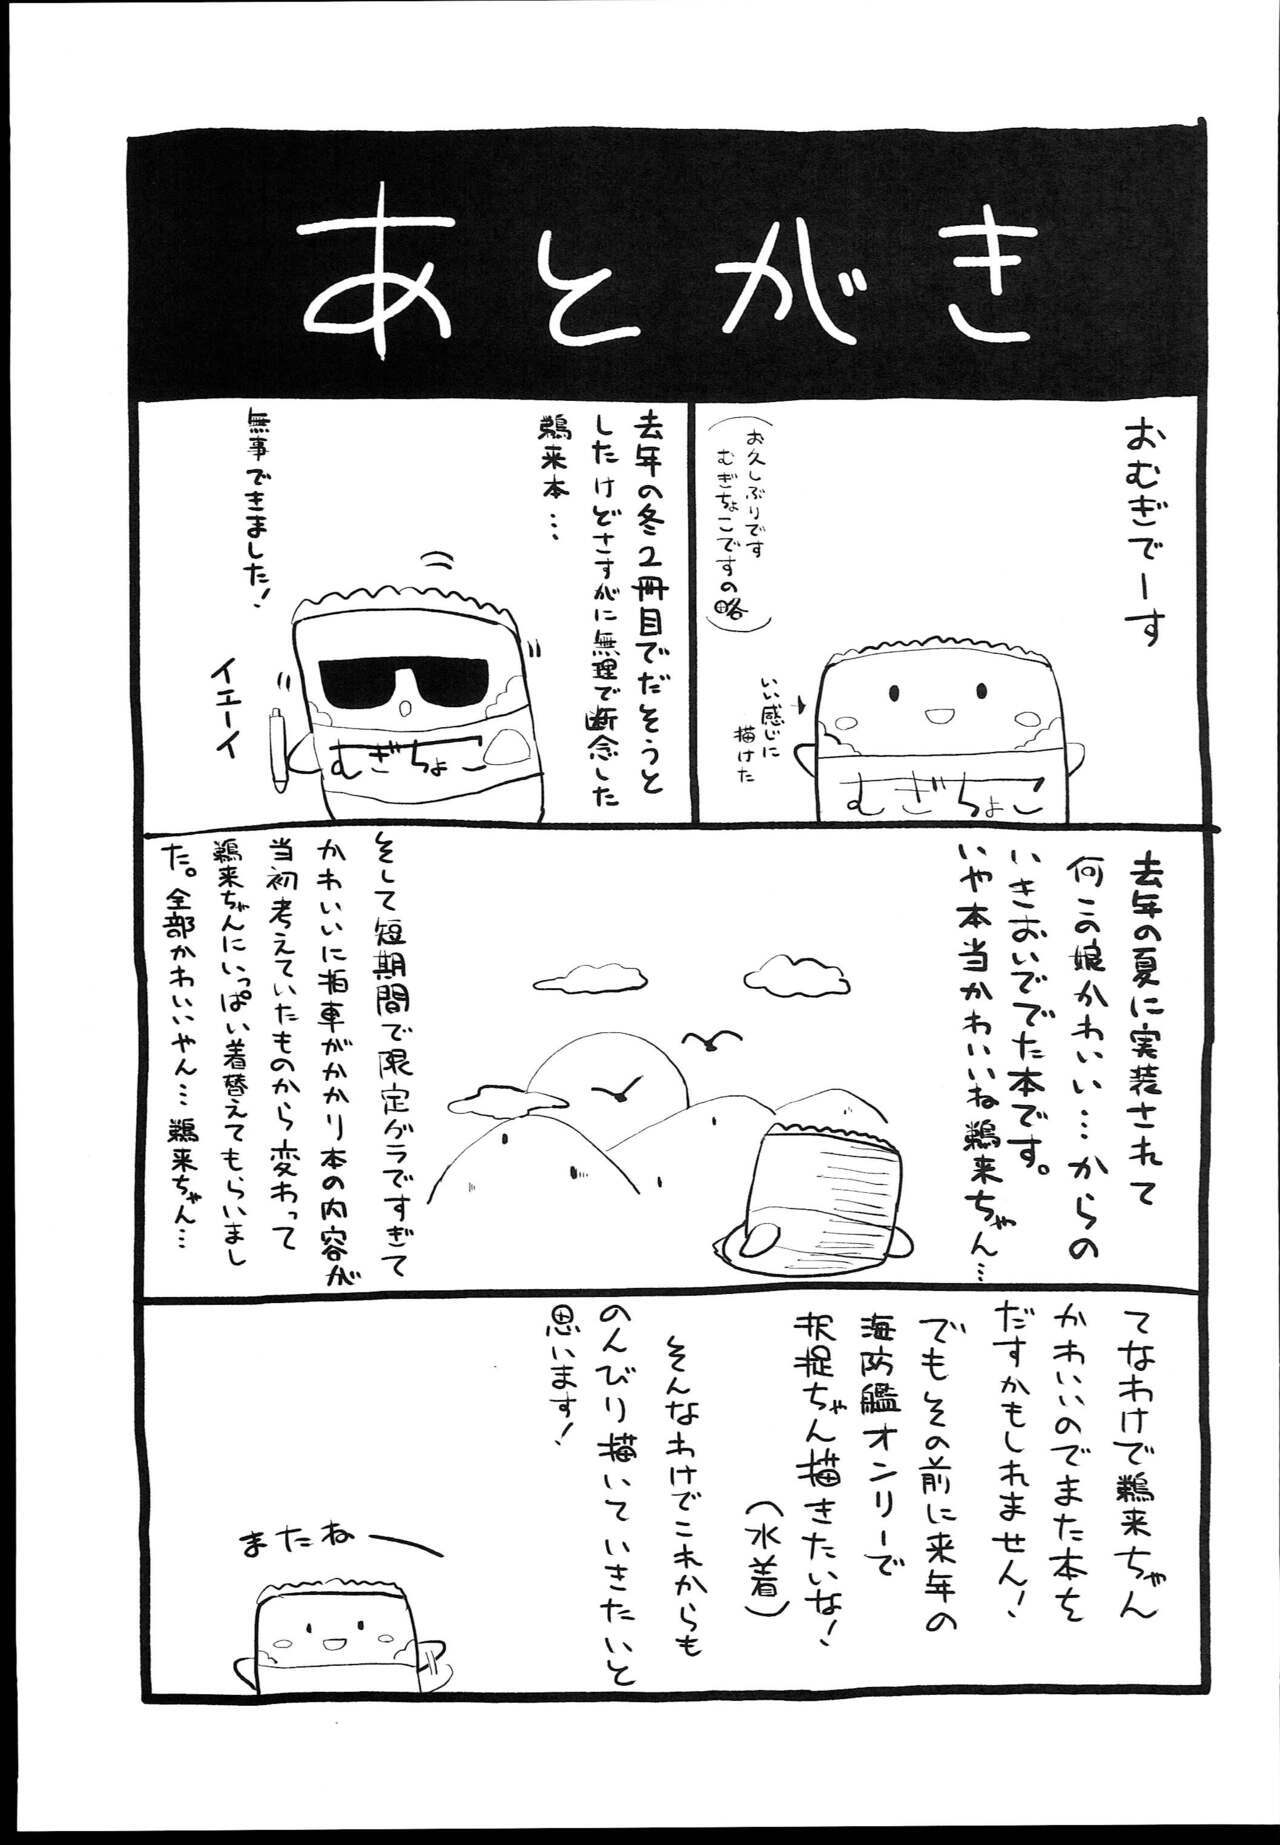 あとがき
おむぎでーす
（お久しぶりです
むぎちょこですの略）
いい感じに
描けた
むぎちょこ
去年の冬2冊目でだそうと
したけどさすがに無理で断念した
鵜来本…
無事できました!
イエーイ
むぎちょこ
去年の夏に実装されて
何この娘かわいい…からの
いきおいででた本です。
いや本当かわいいね鵜来ちゃん…
そして短期間で限定グラですぎて
かわいいに拍車がかかり本の内容が
当初考えていたものから変わって
鵜来ちゃんにいっぱい着替えてもらいまし
た。全部かわいいやん…鵜来ちゃん…
てなわけで鵜来ちゃん
かわいいのでまた本を
だすかもしれません!
でもその前に来年の
海防艦オンリーで
択捉ちゃん描きたいな!
（水着）
そんなわけでこれからも
のんびり描いていきたいと
思います!
またねー